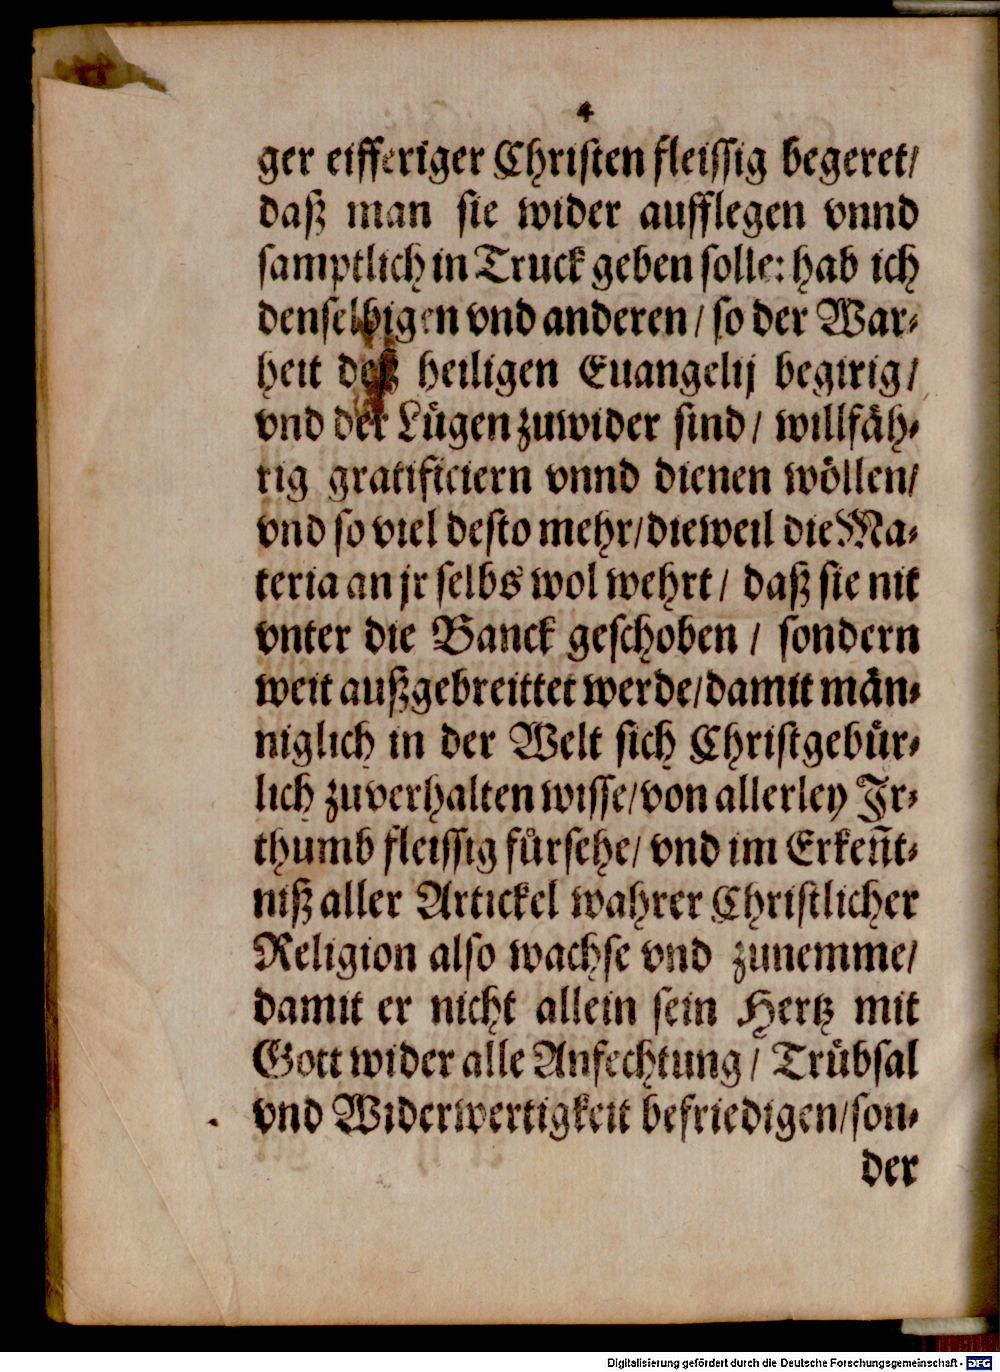 4
ger eifferiger Christen fleissig begeret/
daß man sie wider aufflegen vnnd
samptlich in Truck geben solle: hab ich
denselbigen vnd anderen / so der War-
heit deß heiligen Euangelij begirig/
vnd der Lügen zuwider sind / willfäh-
rig gratificiern vnnd dienen wöllen/
vnd so viel desto mehr/dieweil die Ma-
teria an jr selbs wol wehrt / daß sie nit
vnter die Banck geschoben / sondern
weit außgebreittet werde/damit män-
niglich in der Welt sich Christgebür-
lich zuverhalten wisse/von allerley Jr-
thumb fleissig fürsehe/ vnd im Erkeñt-
niß aller Artickel wahrer Christlicher
Religion also wachse vnd zunemme/
damit er nicht allein sein Hertz mit
Gott wider alle Anfechtung / Trübsal
vnd Widerwertigkeit befriedigen/son-
der
Digitalisierung gefördert durch die Deutsche Forschungsgemeinschaft - DFG